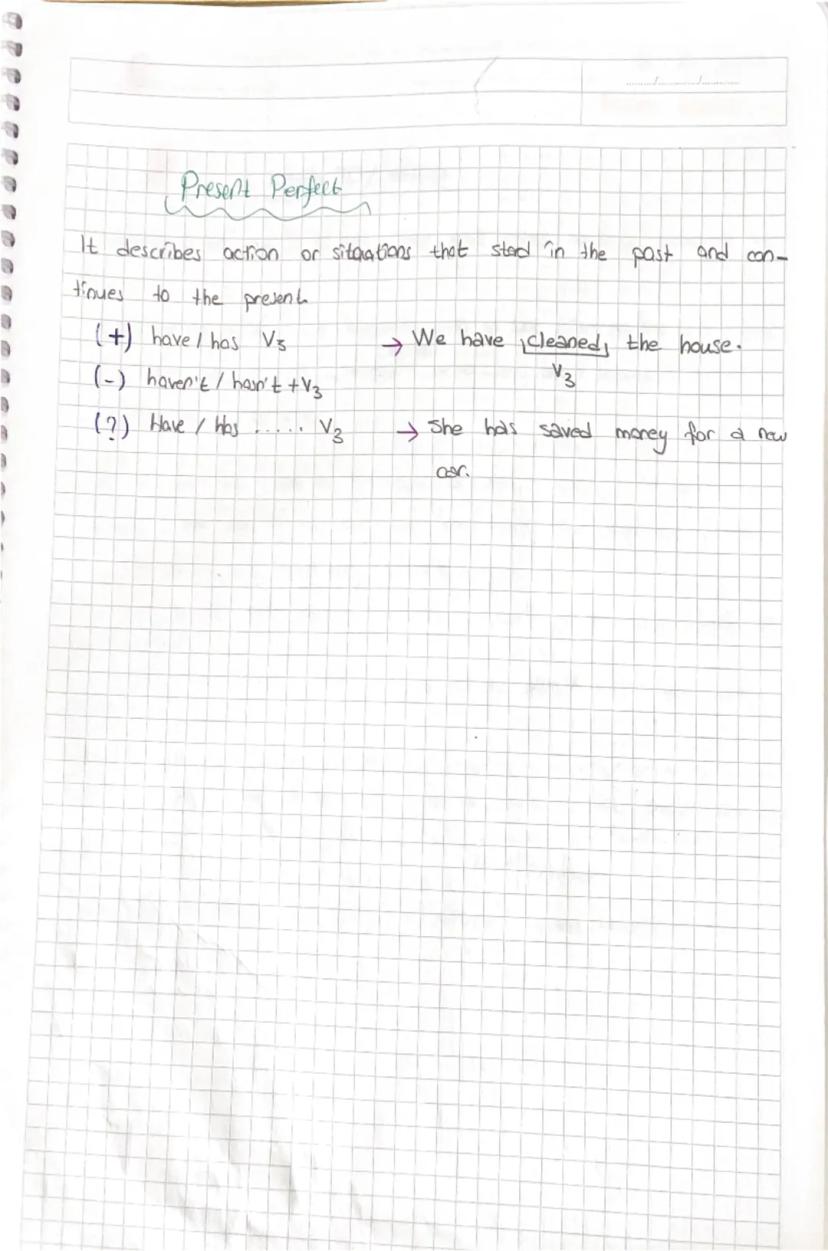 Present Perfect
It describes action or sitauations that sted in the past and con-
tinues to the present.
(+) have / has V3 → We have cleaned the house.
V3
(-) haven't / hasn't + V3
(?) Have / Has ..... V3 → She has saved money for a new
car.